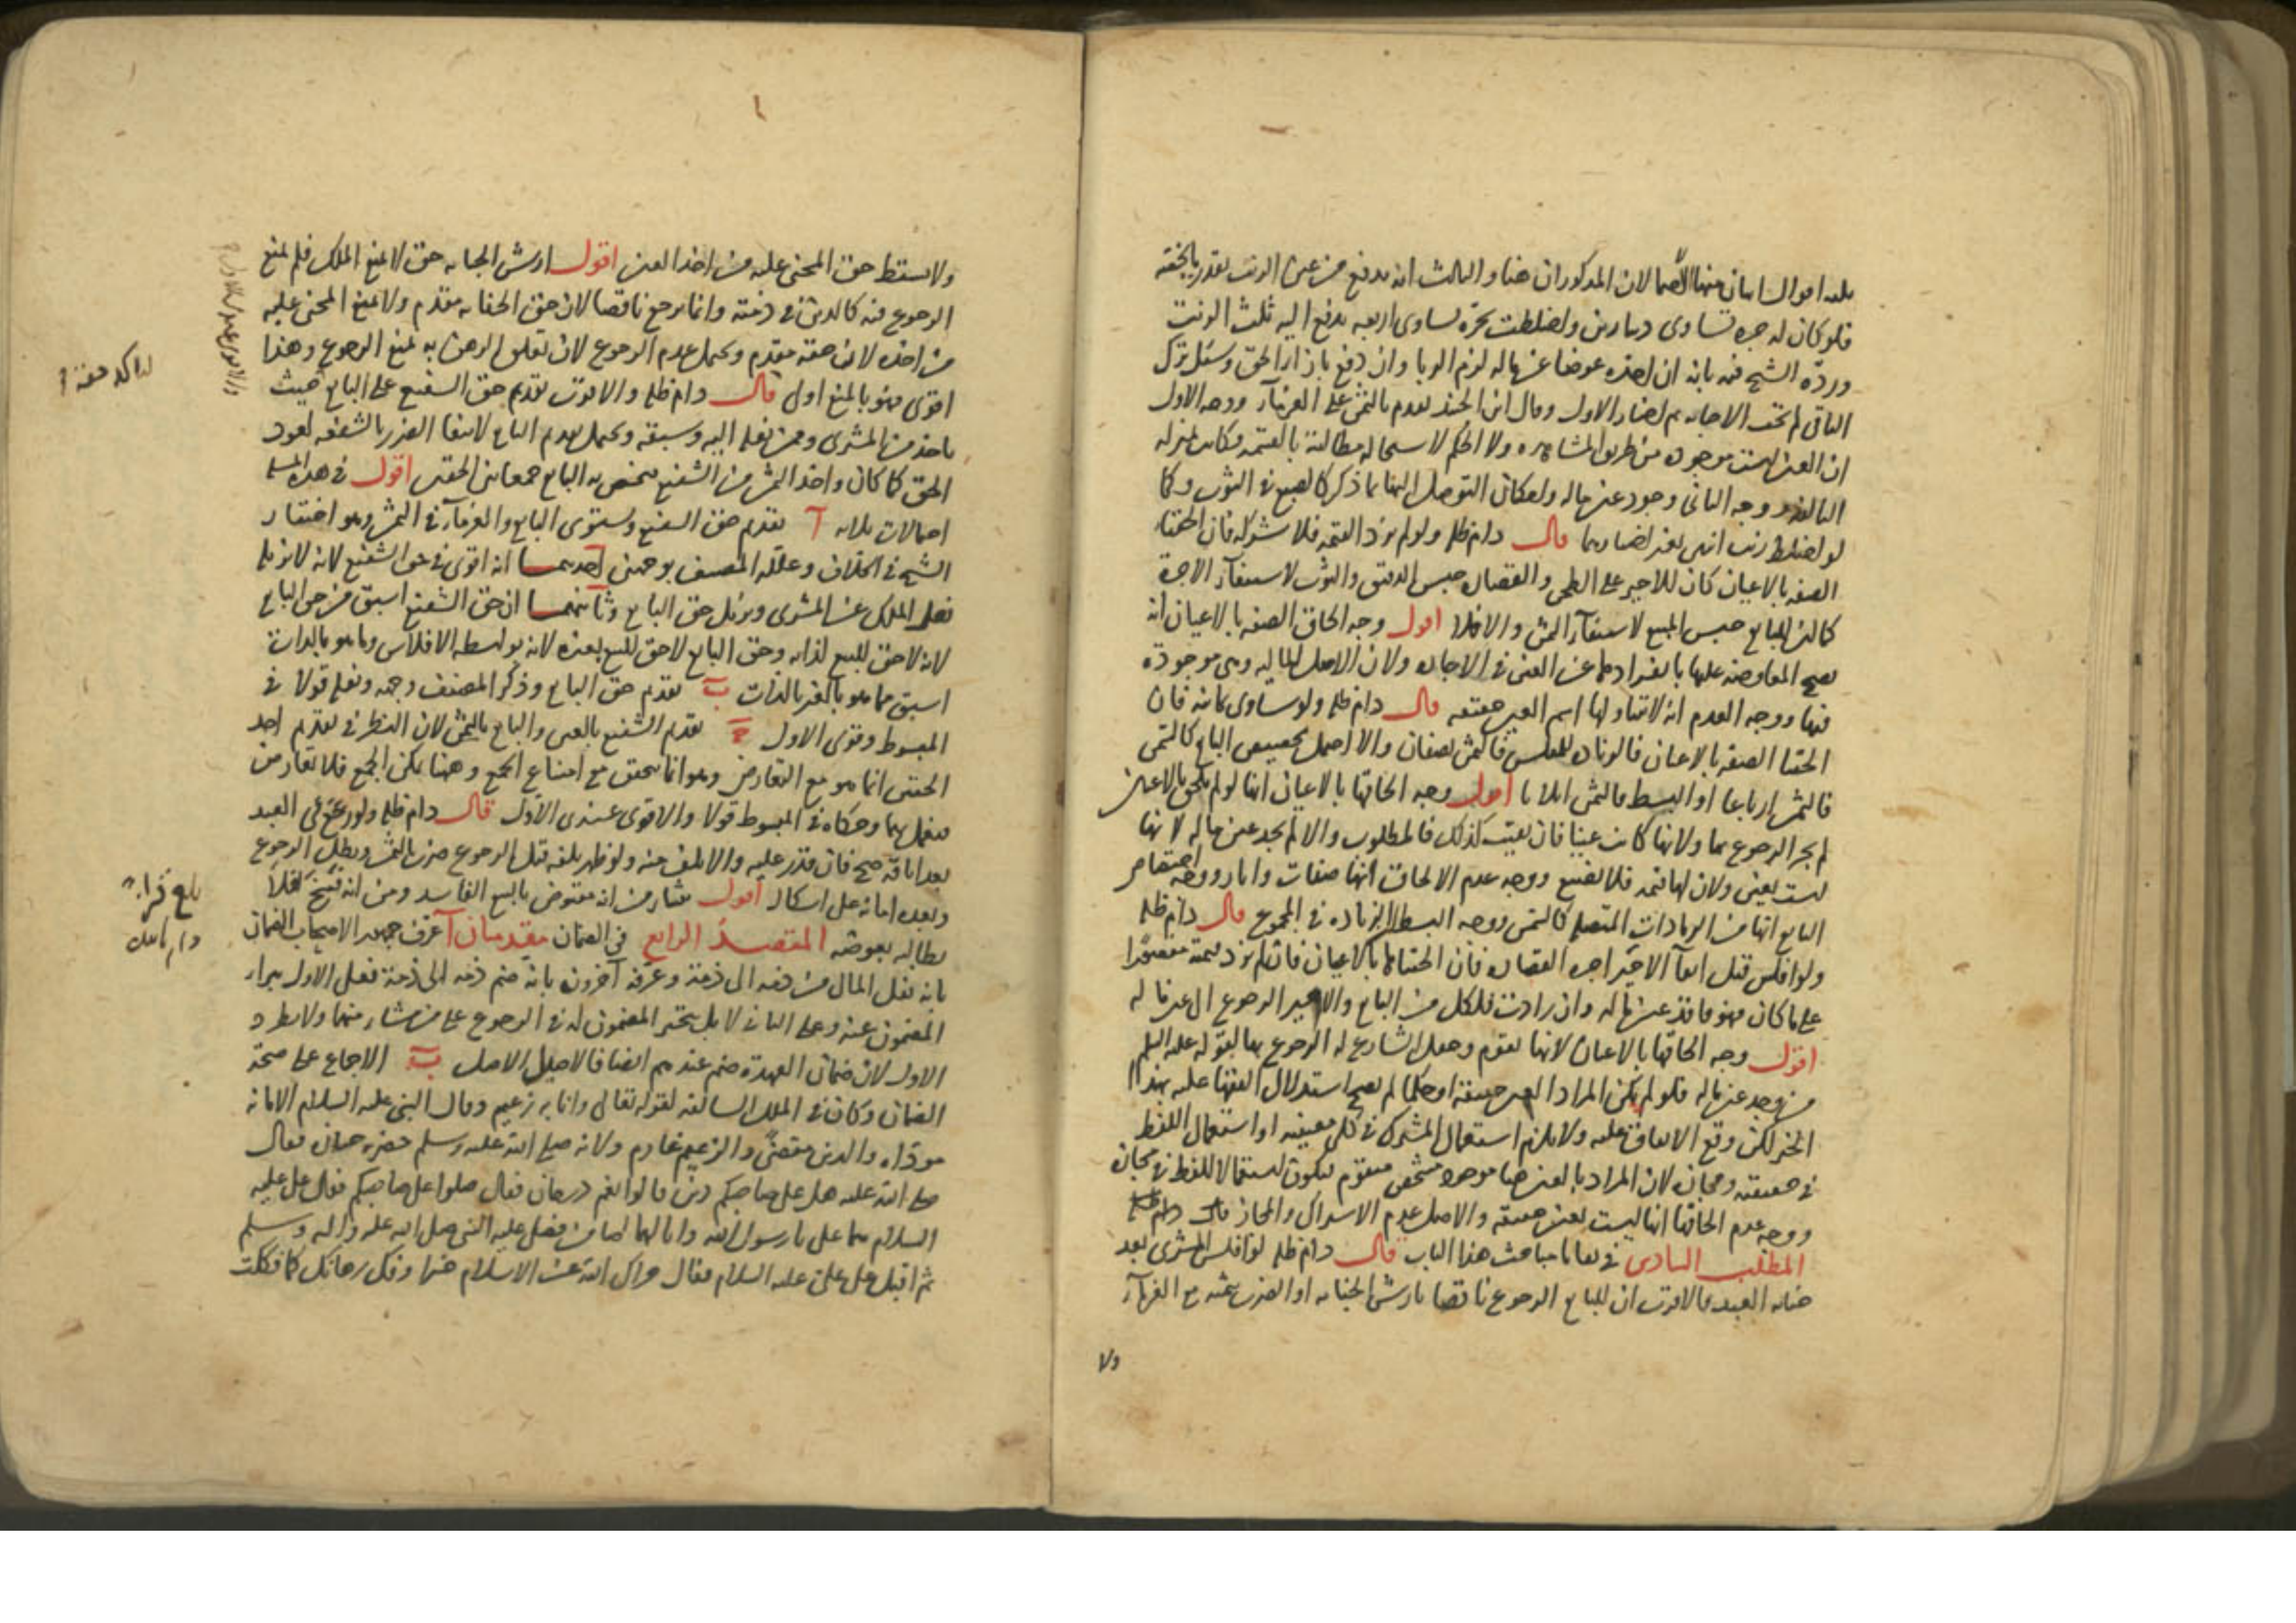 ثلثه اقوال اثنان منها الاحتمالان المذكوران هنا والثالث انه يدفع من عين الزيت بقدر ما يخصه
فلو كان له جره تساوى دينارين واختلطت بجره تساوى اربعه يدفع اليه ثلث الزيت
وردّه الشيخ فيه بانه ان اخذه عوضا عن ماله لزم الربا وان دفع بازاء الحق وسئل ترك
الباقى لم تجب الاجابه ثم اختار الاول وقال ابن الجنيد يقدم بالثمن على الغرماء ووجه الاول
ان العين ليست موجوده من طريق المشاهده ولا الحكم لاستحاله مطالبته بالقسمه فكانت بمنزله
التالفه ووجه الثانى وجود عين ماله وامكان التوصل اليها بما ذكر كالصبغ فى الثوب وكما
لو اختلط زيت انس بغير اختيارهما قال دام ظله ولو لم تزد القيمه فلا شركه فان الحقنا
الصفه بالاعيان كان للاجير على الطحن والقصاره حبس الدقيق والثوب لاستيفاء الاجرة
كما ان للبايع حبس المبيع لاستيفاء الثمن والا فلا اقول وجه الحاق الصفه بالاعيان انه
يصح المعاوضه عليها بانفرادها عن العين فى الاجاره ولان الاصل الماليه وهى موجودة
فيها ووجه العدم انه لا يتناولها اسم العين حقيقه قال دام ظله ولو ساوى ثمانيه فان
الحقنا الصفه بالاعيان فالزيادة للمفلس فالثمن نصفان والا احتمل تخصيص البايع كالسمن
فالثمن ارباعا او البسط فالثمن اثلاثا اقول وجه الحاقها بالاعيان انها لو لم تلحق بالاعيان
لم يجز الرجوع بها ولانها كانت عينا فان بقيت كذلك فالمطلوب والا لم يجد عين ماله لانها
ليست بعين ولان لها قيمه فلا تضيع ووجه عدم الالحاق انها صفات واثار ووجه اختصاص
البايع انها من الزيادات المتصله كالسمن ووجه البسط الزياده فى المجموع قال دام ظله
ولو افلس قبل ايفاء الاجير اجره القصاره فان الحقناها بالاعيان فان لم تزد قيمته مقصورا
على ما كان فهو فاقد عين ماله وان زادت فلكل من البايع والاجير الرجوع الى عين ماله
اقول وجه الحاقها بالاعيان لانها تقوم وجعل الشارع له الرجوع بها لقوله عليه السلم
من وجد عين ماله فلو لم يكن المراد العين حقيقة او حكما لم يصح استدلال الفقها عليه بهذا
الخبر لكن وقع الاتفاق عليه ولا يلزم استعمال المشترك فى كلى معنييه او استعمال اللفظ
فى حقيقته ومجازه لان المراد بالعين هنا موجود مشخص متقوم فيكون استعمالا للفظ فى مجازه
ووجه عدم الحاقها انها ليست بعين حقيقه والاصل عدم الاشتراك والمجاز قال دام ظله
المطلب السادس فى بقايا مباحث هذا الباب قال دام ظله لو افلس المشترى بعد
جنايه العبد فالاقرب ان للبايع الرجوع ناقصا بارش الجنايه او الضرب بثمنه مع الغرماء
ولا
ولا يسقط حق المجنى عليه من اخذ العين اقول ارش الجنايه حق لا يمنع الملك فلم يمنع
الرجوع فيه كالدين فى ذمته وانما يرجع ناقصا لان حق الجنايه مقدم ولا يمنع المجنى عليه
من اخذه لان حقه مقدم ويحتمل عدم الرجوع لان تعلق الرهن به يمنع الرجوع وهذا
اقوى فهو بالمنع اولى قال دام ظله والاقرب تقديم حق الشفيع على البايع حيث
ياخذ من المشترى وممن نقله اليه وسبقه ويحتمل تقديم البايع لانتفاء الضرر بالشفعه لعود
الحق كما كان واخذ الثمن من الشفيع يختص به البايع جمعا بين الحقين اقول فى هذه المسله
احتمالات ثلثه آ تقديم حق الشفيع ويستوى البايع والغرماء فى الثمن وهو اختيار
الشيخ فى الخلاف وعلّله المصنف بوجهين احدهما انه اقوى فى حق الشفيع لانه لا يزيله
نقل الملك عن المشترى ويزيل حق البايع وثانيهما ان حق الشفيع اسبق من حق البايع
لانه لاحق للبيع لذاته وحق البايع لاحق للبيع بغيره لانه بواسطه الافلاس وما هو بالذات
اسبق مما هو بالغير بالذات ب تقديم حق البايع وذكر المصنف وجهه ونقله قولا فى
المبسوط وقوى الاول ج تقديم الشفيع بالعين والبايع بالثمن لان النظر فى تقديم احد
الحقين انما هو مع التعارض وهو انما يتحقق مع امتناع الجمع وههنا يمكن الجمع فلا تعارض
فيعمل بهما وحكاه فى المبسوط قولا والاقوى عندى الاول قال دام ظله ولو رجع فى العبد
بعد اباقه صح فان قدر عليه والا تلف منه ولو ظهر تلفه قبل الرجوع ضرب بالثمن وبطل الرجوع
وبعده امانه على اشكال اقول ينشا من انه مقبوض بالبيع الفاسد ومن انه فسخ فلا
يطالبه بعوضه المقصد الرابع فى الضمان مقدمتان آ عرف جمهور الاصحاب الضمان
بانه نقل المال من ذمه الى ذمة وعرّفه آخرون بانه ضم ذمه الى ذمة فعلى الاول يبراء
المضمون عنه وعلى الثانى لا بل يتخير المضمون له فى الرجوع على من شاء منهما ولا يطرد
الاول لان ضمان العهدة ضم عندهم ايضا فالاصيل الاصل ب الاجماع على صحة
الضمان وكان فى الملل السالفه لقوله تعالى وانا به زعيم وقال النبى عليه السلام الامانه
مودّاه والدين مقضىّ والزعيم غارم ولانه صلى الله عليه وسلم حضره جنازه فقال
صلى الله عليه هل على صاحبكم دين قالوا نعم درهمان فقال صلوا على صاحبكم فقال على عليه
السلام هما على يا رسول الله وانا لهما ضامن فصلى عليه النبى صلى الله عليه واله وسلم
ثم اقبل على على عليه السلام فقال جزاك الله عن الاسلام خيرا وفك رهانك كما فككت
بلغ قراءة